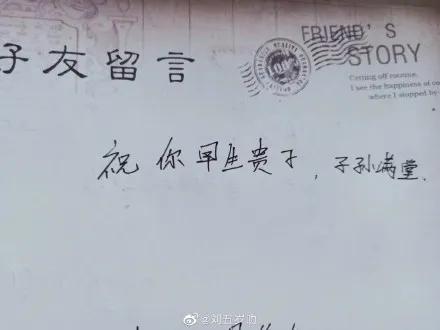 FRIEND'S
STORY
Getting off resume,
I see the happiness of co
where I stopped by
好友留言
祝你早生贵子，子孙满堂.
@刘五岁吻